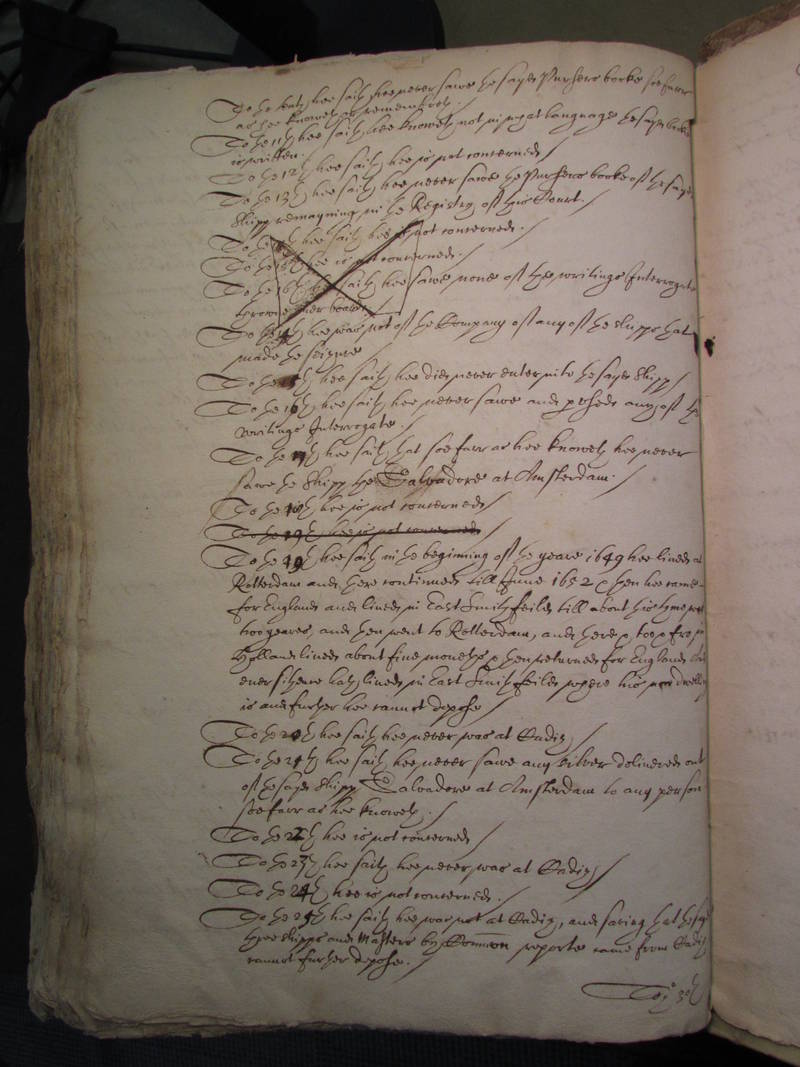 To the 10th hee saith hee never sawe the sayd Pursers booke soe farr
as hee knoweth or remembreth.
To the 11th hee saith hee knoweth not in what language the sayd booke
is written.
To the 12th hee saith hee is not concerned
To the 13th hee saith hee never sawe the Pursers booke of the sayd
Shipp remayning in the Registry of this Court.
To the hee saith hee is not concerned.
To the 15th hee is not concerned.
To the 16th hee saith hee sawe none of the writings Interrogate
throwne over board
To the hee was not of the Company of any of the shipps that
made the seizure
To the hee saith hee did never enter into the sayd Shipp
To the 16th hee saith hee never sawe and perused any of the
writings Interrogate.
To the 17th hee saith that soe farr as hee knoweth hee never
sawe the Shipp the Salvadore at Amsterdam.
To the 18th hee is not concerned
To the 19th hee is not concerned
To the 19th hee saith in the beginning of the yeare 1649 hee lived at
Rotterdam and there continued till June 1652 & then hee came
for England and lived in East Smithfeild till about this tyme
two yeares, and then went to Rotterdam, and there in
Holland lived about five moneths & then returned for England and
ever sithence hath lived in East Smithfeild where his now dwelling
is and further hee cannot depose
To the 20th hee saith hee never was at Cadiz
To the 21th hee saith hee never sawe any silver delivered out
of the sayd Shipp Salvadore at Amsterdam to any person
soe farr as hee knoweth.
To the 22th hee is not concerned
To the 23th hee saith hee never was at Cadiz
To the 24th hee is not concerned.
To the 25th hee saith hee was not at Cadiz, and saving that the sayd
three shipps and Masters by Common reporte came from Cadiz
cannot further depose.
To the